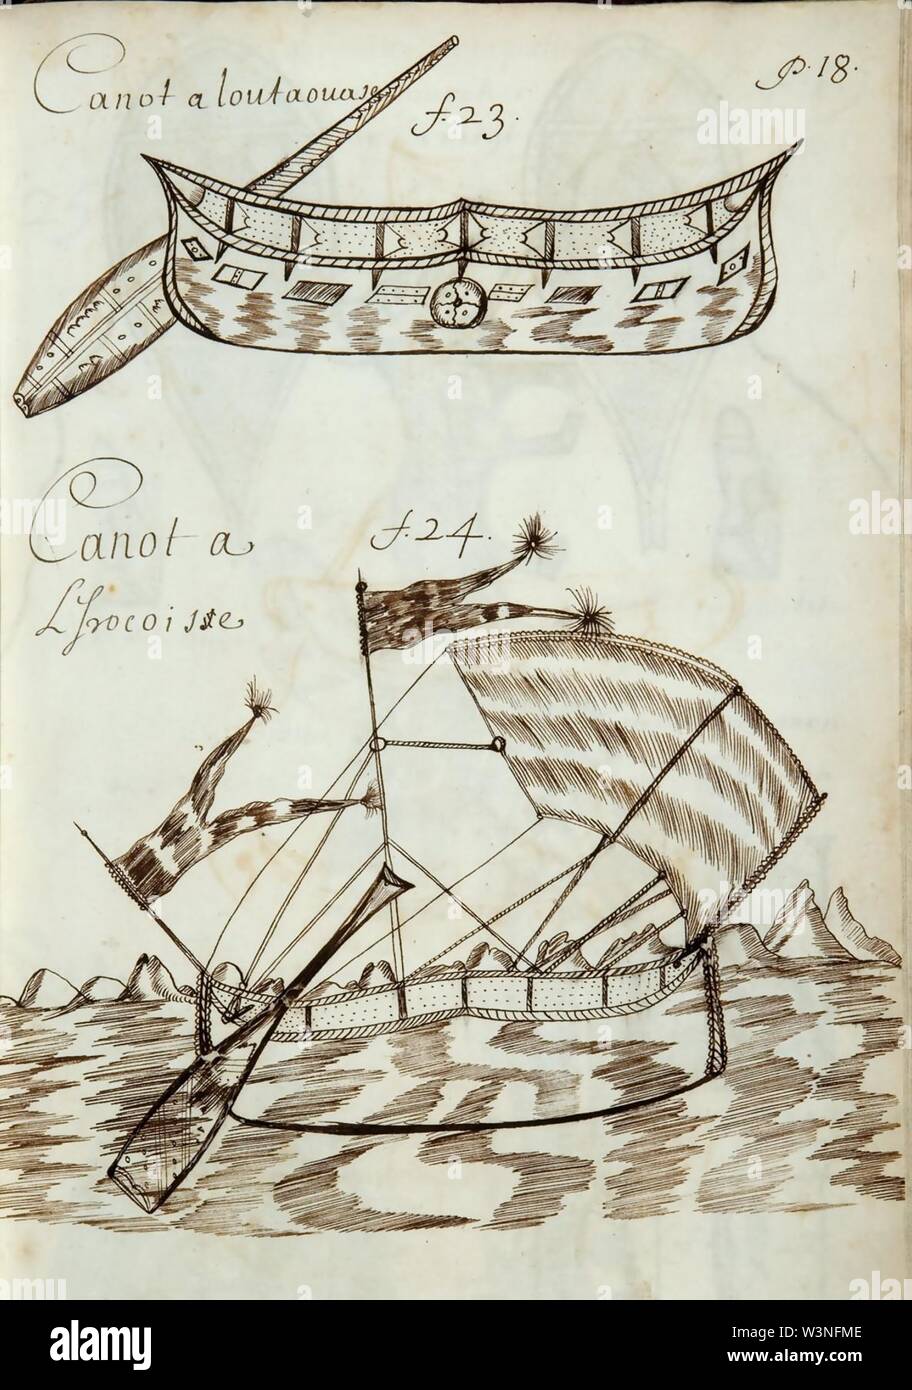 Canot a loutaouase
f.23.
P.18.
Canot a
LJrocoisse
f.24.
alamy
alamy
Image ID: W3NFME
www.alamy.com